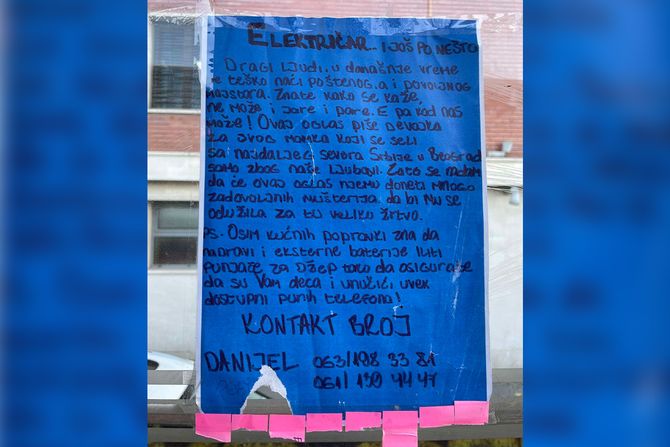 Električar.. i još po nešto
Dragi ljudi, u današnje vreme
je teško naći poštenog, a i povoljnog
majstora. Znate kako se kaže,
ne može i jare i pare. E pa kod nas
može! Ovaj oglas piše devojka
za svog momka koji se seli
sa najdaljeg severa Srbije u Beograd
samo zbog naše ljubavi. Zato se nadam
da će ovaj oglas njemu doneti mnogo
zadovoljnih mušterija, da bi mu se
odužila za tu veliku žrtvu.
ps. Osim kućnih popravki zna da
napravi i eksterne baterije iliti
punjače za džep tako da osigurate
da su Vam deca i unučići uvek
dostupni punih telefona!
KONTAKT BROJ
DANIJEL 063/198 33 81
061/130 44 47